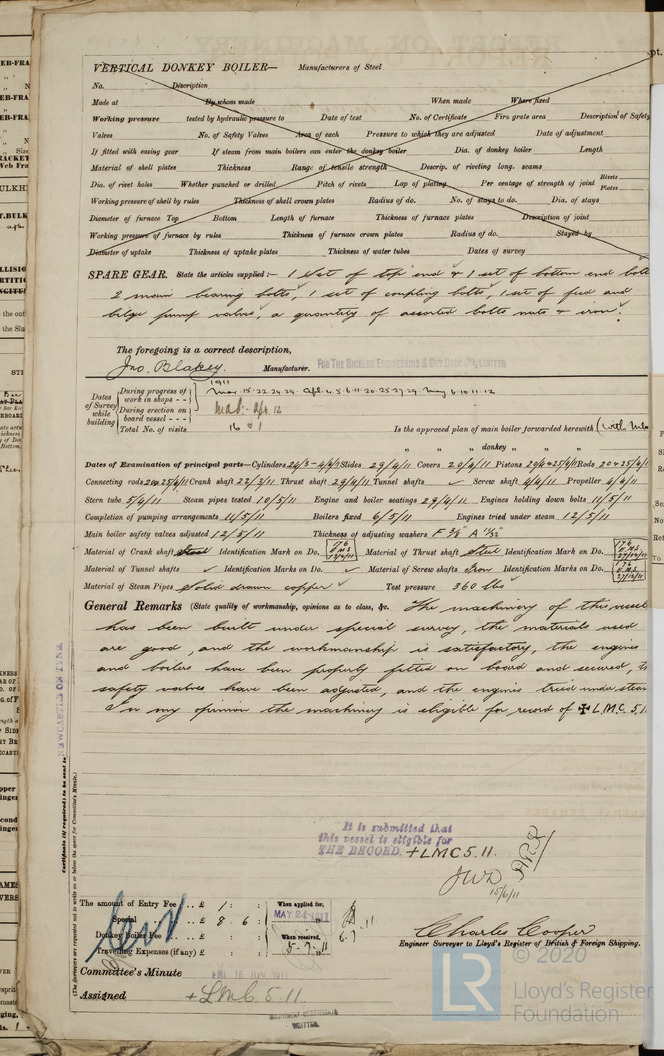 VERTICAL DONKEY BOILER— Manufacturers of Steel
No. Description
Made at By whom made When made Where fixed
Working pressure tested by hydraulic pressure to Date of test No. of Certificate Fire grate area Description of Safety
Valves No. of Safety Valves Area of each Pressure to which they are adjusted Date of adjustment
If fitted with easing gear If steam from main boilers can enter the donkey boiler Dia. of donkey boiler Length
Material of shell plates Thickness Range of tensile strength Descrip. of riveting long. seams
Dia. of rivet holes Whether punched or drilled Pitch of rivets Lap of plating Per centage of strength of joint Rivets Plates
Working pressure of shell by rules Thickness of shell crown plates Radius of do. No. of stays to do. Dia. of stays
Diameter of furnace Top Bottom Length of furnace Thickness of furnace plates Description of joint
Working pressure of furnace by rules Thickness of furnace crown plates Radius of do. Stayed by
Diameter of uptake Thickness of uptake plates Thickness of water tubes Dates of survey
SPARE GEAR. State the articles supplied:— 1 set of top end & 1 set of bottom end bolts
2 main bearing bolts, 1 set of coupling bolts, 1 set of feed and
bilge pump valves, a quantity of assorted bolts nuts & iron.
The foregoing is a correct description,
Jno. Blakey. Manufacturer. FOR THE SHIELDS ENGINEERING & DRY DOCK CO., LIMITED
Dates of Survey while building
During progress of work in shops - - 1911 Mar. 15. 22. 24. 29. Apl. 4. 5. 6. 11. 20. 25. 27. 29. May 6. 10. 11. 12
During erection on board vessel - - -
Total No. of visits 16
Is the approved plan of main boiler forwarded herewith
" " " donkey " " "
Dates of Examination of principal parts—Cylinders 24/3 - 4/4/11 Slides 29/4/11 Covers 20/4/11 Pistons 20/4 & 25/4/11 Rods 20 & 25/4/11
Connecting rods 20 & 25/4/11 Crank shaft 22/3/11 Thrust shaft 29/4/11 Tunnel shafts Screw shaft 4/4/11 Propeller 4/4/11
Stern tube 5/4/11 Steam pipes tested 10/5/11 Engine and boiler seatings 29/4/11 Engines holding down bolts 11/5/11
Completion of pumping arrangements 11/5/11 Boilers fixed 6/5/11 Engines tried under steam 12/5/11
Main boiler safety valves adjusted 12/5/11 Thickness of adjusting washers F 3/8" A 11/32"
Material of Crank shaft Steel Identification Mark on Do. Material of Thrust shaft Steel Identification Mark on Do.
Material of Tunnel shafts Identification Marks on Do. Material of Screw shafts Iron Identification Marks on Do.
Material of Steam Pipes Solid drawn copper Test pressure 360 lbs
General Remarks (State quality of workmanship, opinions as to class, &c. The machinery of this vessel
has been built under special survey, the materials used
are good, and the workmanship is satisfactory, the engines
and boilers have been properly fitted on board and secured,
safety valves have been adjusted, and the engines tried under steam
In my opinion the machinery is eligible for record of ✠ L.M.C. 5.11
NEWCASTLE ON TYNE
Certificate (if required) to be sent to
(The Surveyors are requested not to write on or below the space for Committee's Minute.)
It is submitted that
this vessel is eligible for
THE RECORD. +LMC 5.11.
JWD
15/6/11
The amount of Entry Fee .. £ 1 : :
Special .. .. £ 8 . 6 :
Donkey Boiler Fee .. .. £ : :
Travelling Expenses (if any) £ : :
When applied for,
MAY 24 1911
When received,
5.7.11
6.7.11
Charles Cooper
Engineer Surveyor to Lloyd's Register of British & Foreign Shipping.
Committee's Minute FRI 16 JUN 1911
Assigned +L.M.C. 5.11
MACHINERY CERTIFICATE
WRITTEN.
© 2020
LR
Lloyd's Register
Foundation